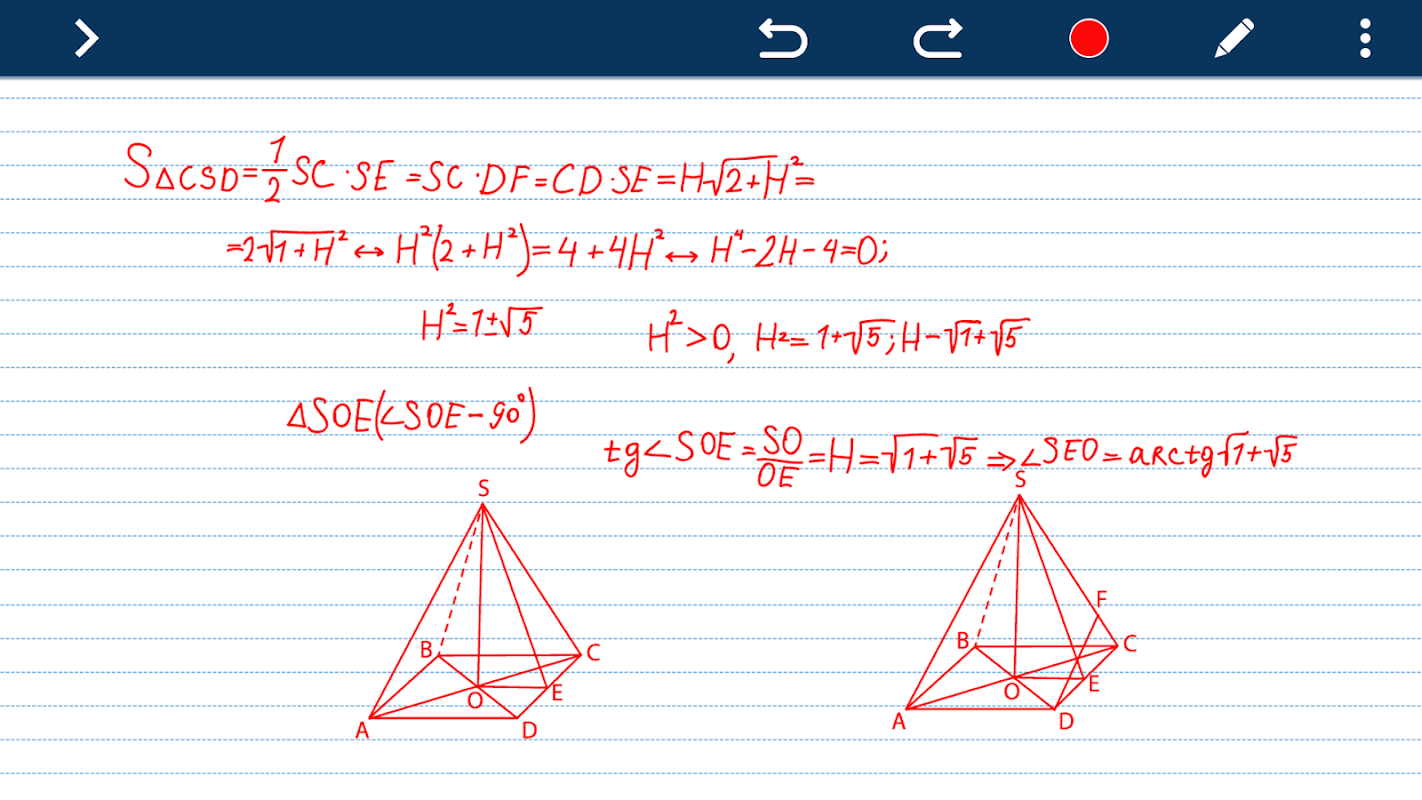 S△CSD=1/2 SC·SE=SC·DF=CD·SE=H√2+H²=
=2√1+H²↔H²(2+H²)=4+4H²↔H⁴-2H-4=0;
H²=1±√5 H²>0, H2=1+√5;H-√1+√5
△SOE(∠SOE-90°)
tg∠SOE=SO/OE=H=√1+√5⇒∠SEO=arctg√1+√5
S S
F
B C B C
O E O E
A D A D